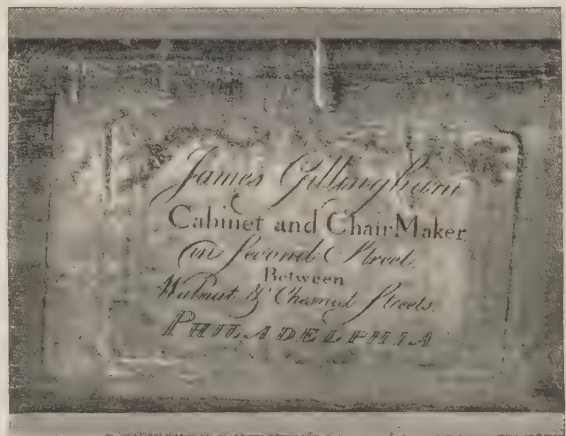 James Gillingham
Cabinet and Chair Maker
in Second Street
Between
Walnut & Chesnut Streets.
PHILADELPHIA